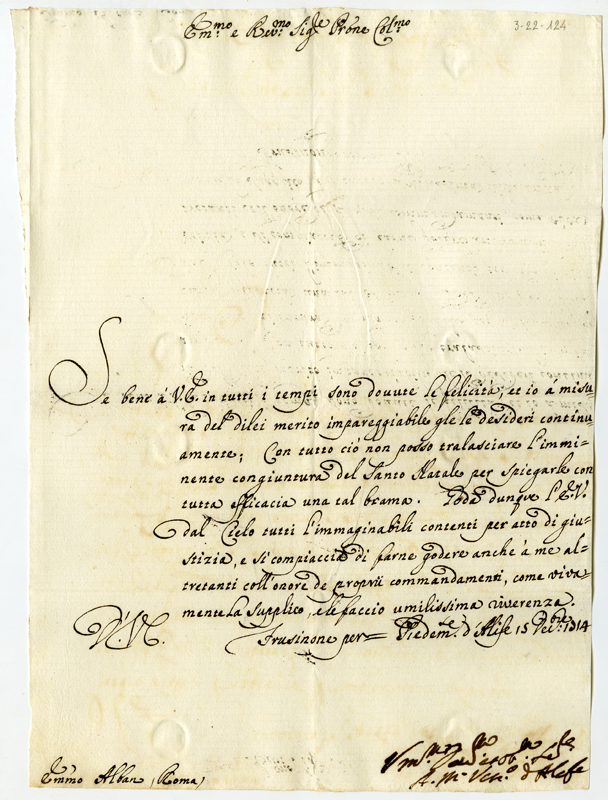 3-22-124
Em.mo e Rev.mo Sig.re P'rone Col.mo
Se bene á V.E. in tutti i tempi sono dovute le felicitá, et io á misu-
ra del dilei merito impareggiabile gle le desideri continu-
amente; Con tutto ció non posso tralasciare l'immi-
nente congiuntura del Santo Natale per spiegarle con
tutta efficacia una tal brama. Goda dunque l'E.V.
dal Cielo tutti l'immaginabili contenti per atto di giu-
stizia, e si compiaccia di farne godere anche á me al-
tretanti coll'onore de proprii commandamenti, come viva-
mente la supplico, e le faccio umilissima riverenza.
V.E.
Frusinone per= Piedem.te d'Alife 15 Xbre
Em̃mo Albani (Roma)
d'Alife